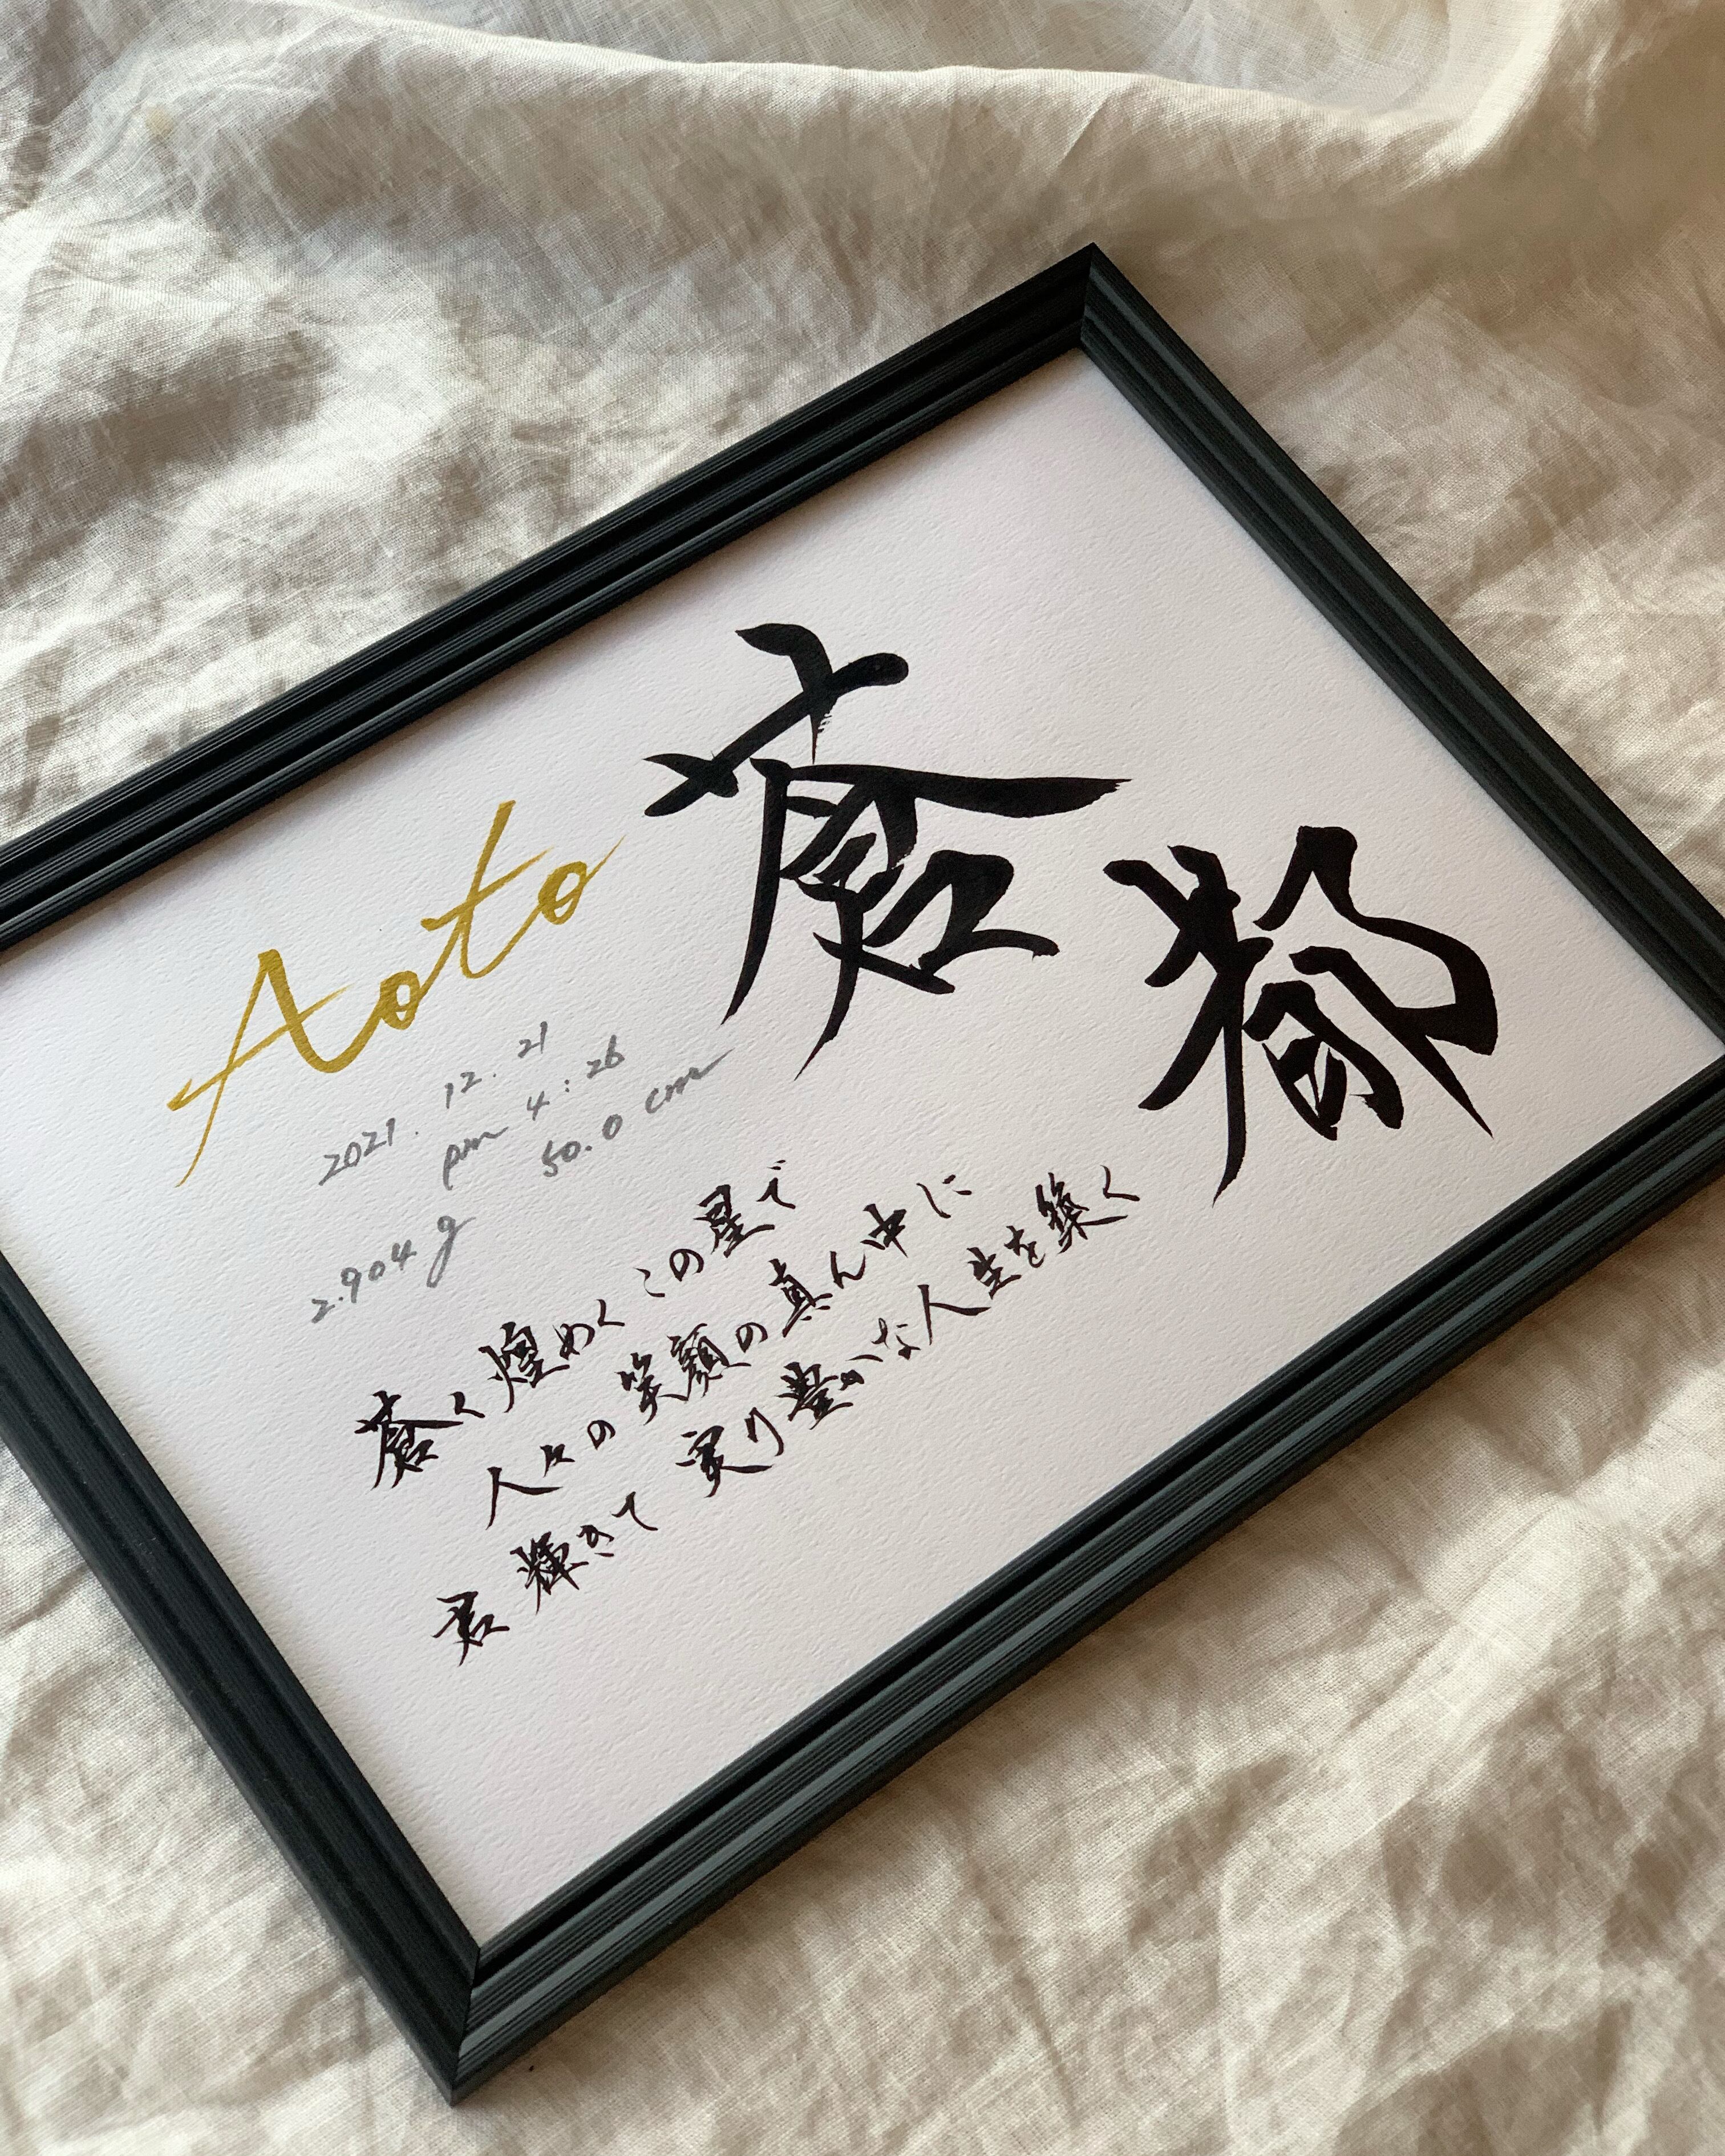 蒼都
Aoto
2021. 12. 21
pm 4:26
50.0 cm
2.904 g
蒼く煌めくこの星で
人々の笑顔の真ん中に
君輝きて 実り豊かな人生を築く